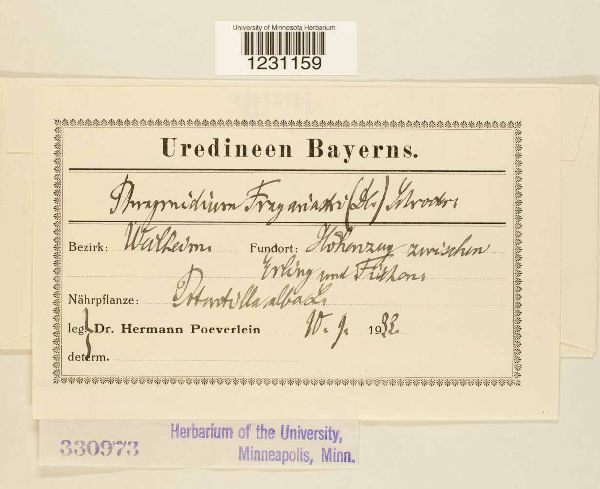 University of Minnesota Herbarium
1231159
Uredineen Bayerns.
Phragmidium Fragariastri (DC.) Schroet.
Bezirk: Weilheim Fundort: Höhenzug zwischen
Erling und Fischen
Nährpflanze: Potentilla alba L.
leg. Dr. Hermann Poeverlein 10. 9. 1922.
determ.
330973
Herbarium of the University,
Minneapolis, Minn.